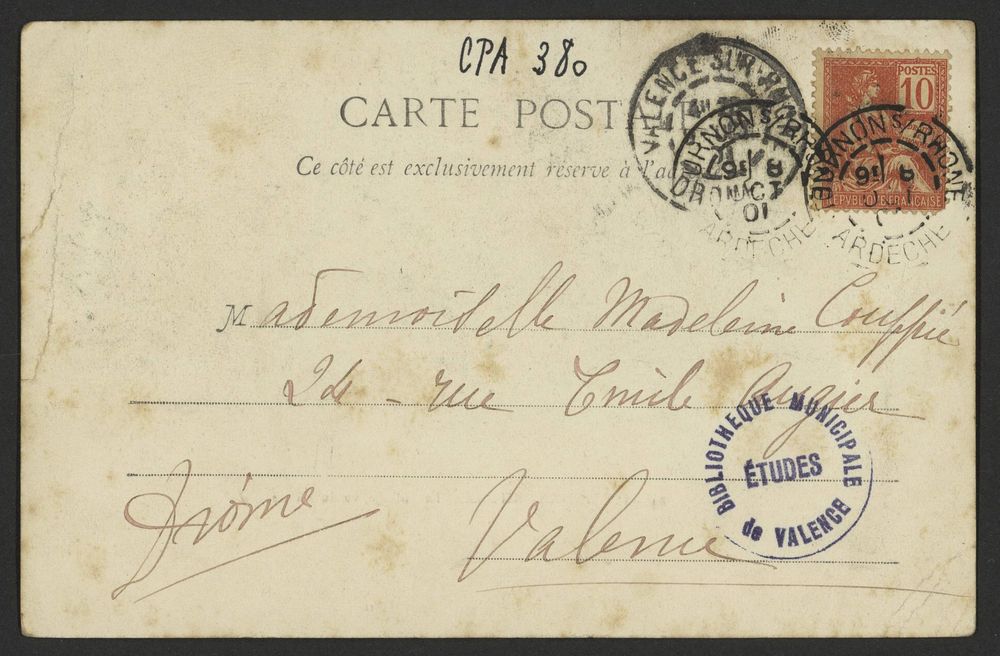 CPA 380
CARTE POST
Ce côté est exclusivement réservé à l'ad
VALENCE SUR RHONE
TOURNON S/ RHONE
ARDECHE
OCT
01
TOURNON S/ RHONE
ARDECHE
POSTES
10
REPVBLIQVE FRANÇAISE
Mademoiselle Madeleine Couffié
24 - rue Emile Augier
Drôme
Valence
BIBLIOTHEQUE MUNICIPALE
ÉTUDES
de VALENCE